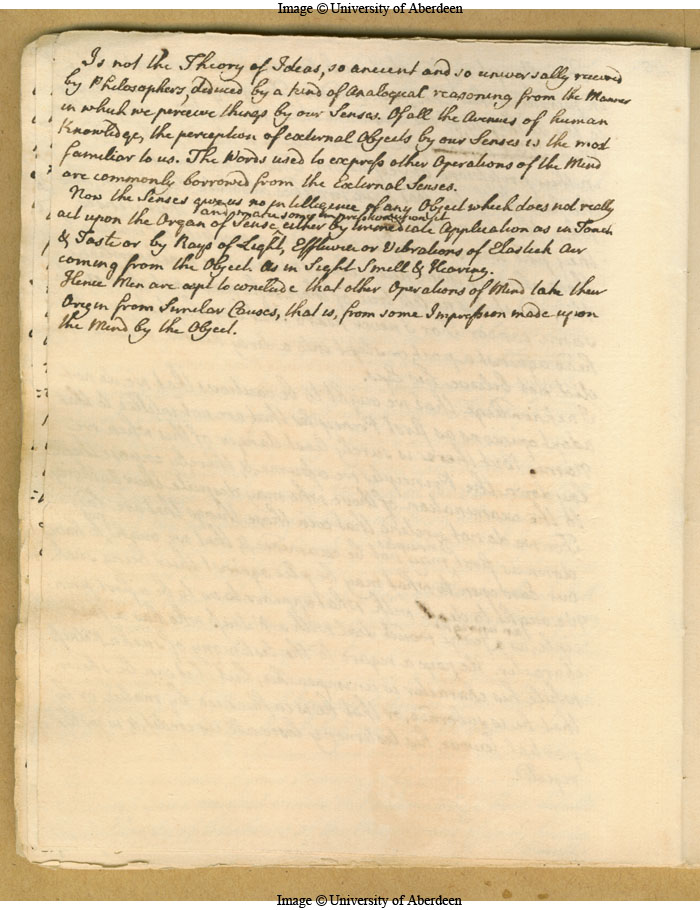 Image © University of Aberdeen
Is not the Theory of Ideas, so ancient and so universally received
by Philosophers, deduced by a kind of Analogical reasoning from the Manner
in which we perceive things by our Senses. Of all the Avenues of human
Knowledge, the perception of external Objects by our Senses is the most
familiar to us. The Words used to express other Operations of the Mind
are commonly borrowed from the External Senses.
Now the Senses give us no intelligence of any Object which does not really
and make some impression upon it
act upon the Organ of Sense, either by immediate Application as in Touch
& Taste or by Rays of Light, Effluvia or Vibrations of Elastick Air
coming from the Object. As in Sight Smell & Hearing.
Hence Men are apt to conclude that other Operations of Mind take their
Origin from Similar Causes, that is, from some Impression made upon
the Mind by the Object.
Image © University of Aberdeen